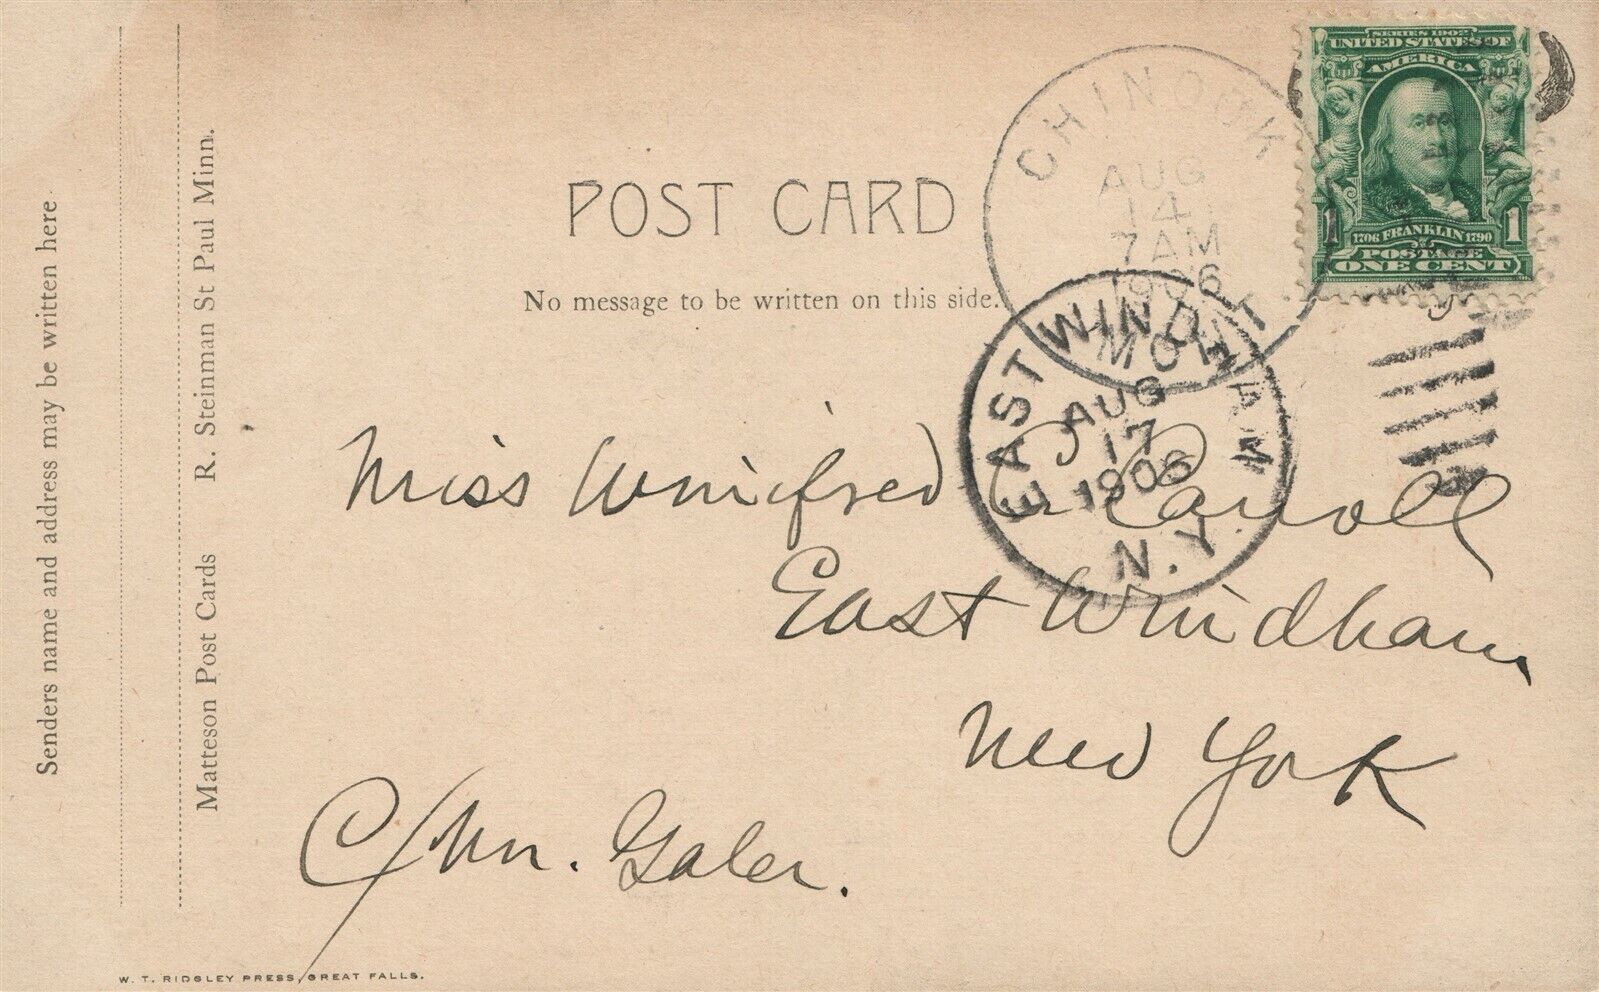 Senders name and address may be written here
Matteson Post Cards R. Steinman St Paul Minn.
POST CARD
No message to be written on this side.
CHINOOK
AUG
14
7 AM
1906
MONT.
SERIES 1902
UNITED STATES OF
AMERICA
1 1706 FRANKLIN 1790 1
POSTAGE
ONE CENT
EAST WINDHAM
AUG
17
1906
N.Y.
Miss Winifred C. Carroll
East Windham
New York
C/ Mr. Galer.
W. T. RIDGLEY PRESS, GREAT FALLS.